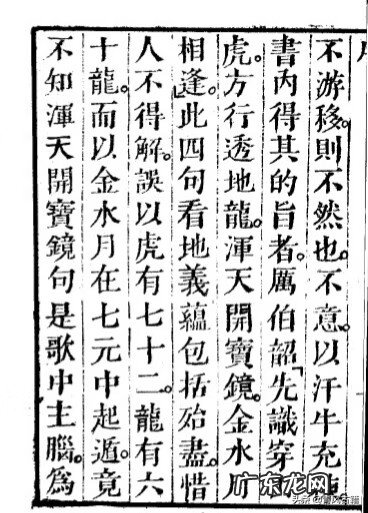 不游移。則不然也。不意。以汗牛充
書內得其的旨者。厲伯韶「先識穿
虎。方行透地龍。渾天開寶鏡。金水月
相逢。」此四句看地義蘊包括殆盡。惜
人不得解。誤以虎有七十二。龍有六
十龍。而以金水月在七元中起遁。竟
不知渾天開寶鏡句是歌中主腦。為
广东龙网